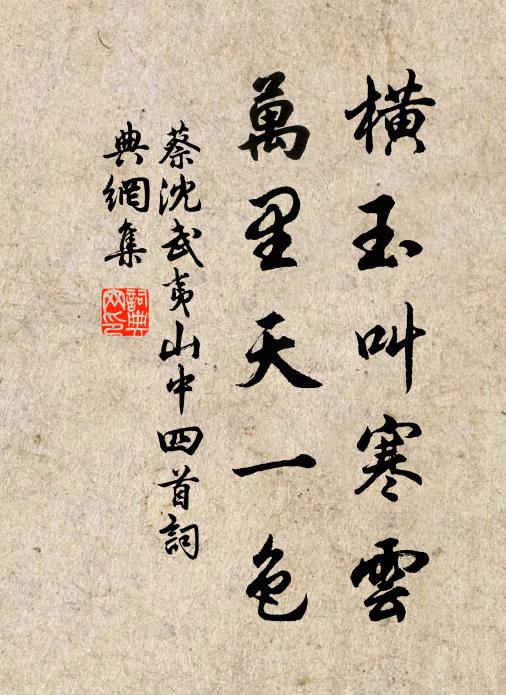 橫玉叫寒雲
萬里天一色
蔡沈武夷山中四首詞
典網集
詞典網印